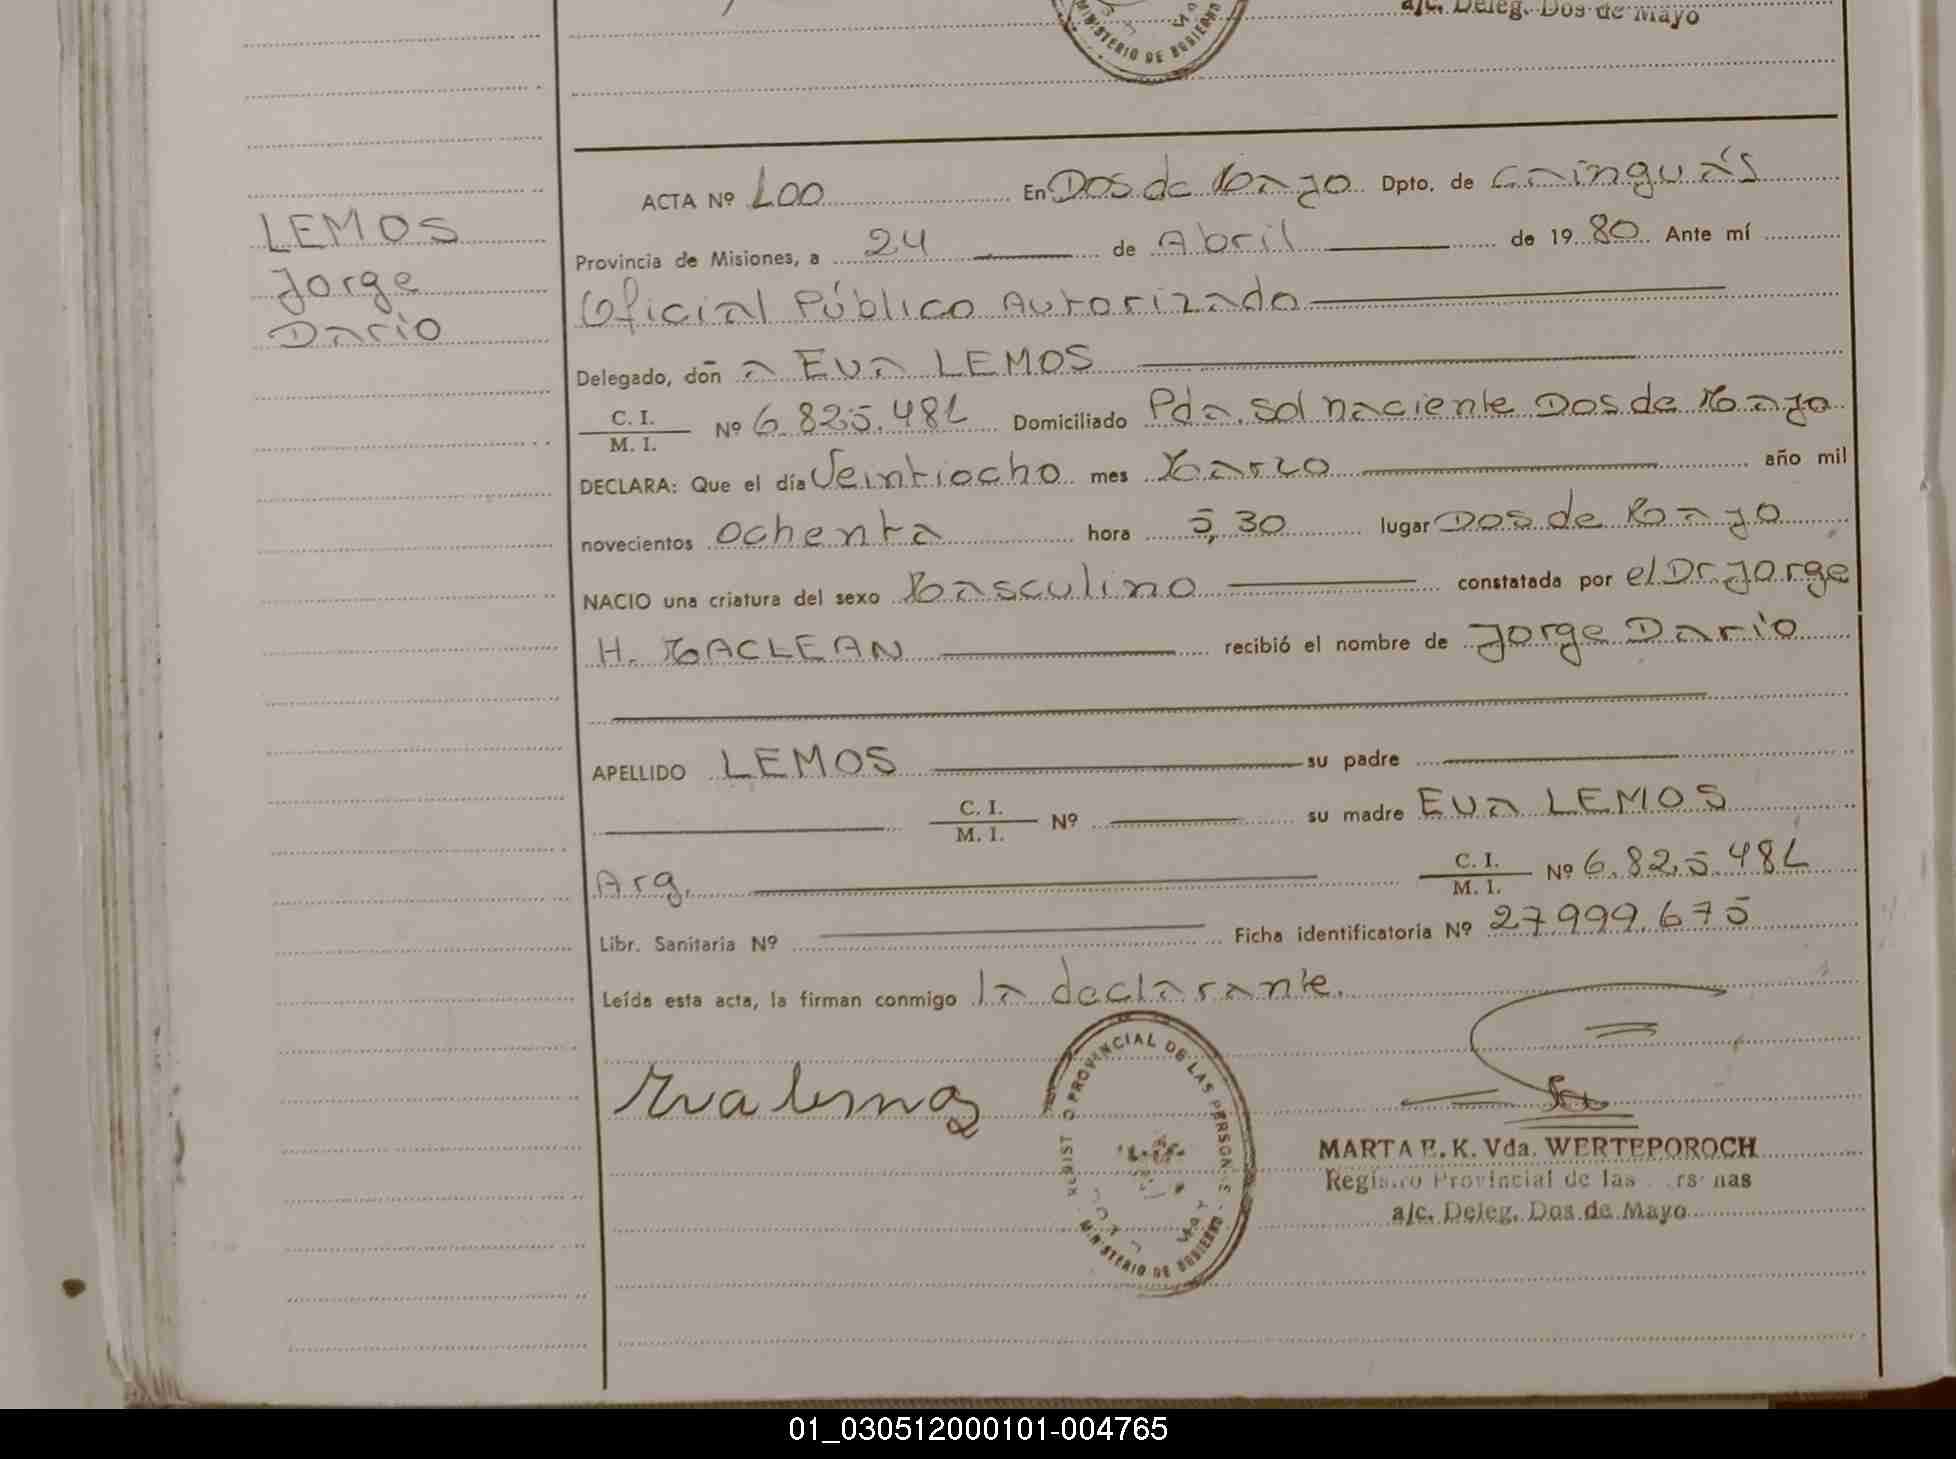 MINISTERIO DE GOBIERNO
a/c. Deleg. Dos de Mayo
LEMOS
Jorge
Darío
ACTA Nº 100 En Dos de Mayo Dpto. de Cainguás
Provincia de Misiones, a 24 de Abril de 19 80 Ante mí
Oficial Público Autorizado
Delegado, don̄ a Eva LEMOS
C. I.
M. I. Nº 6.825.481 Domiciliado Pda. Sol naciente Dos de Mayo
DECLARA: Que el día Veintiocho mes Marzo año mil
novecientos ochenta hora 5,30 lugar Dos de Mayo
NACIO una criatura del sexo Masculino constatada por el Dr. Jorge
H. MACLEAN recibió el nombre de Jorge Darío
APELLIDO LEMOS su padre
C. I.
M. I. Nº su madre Eva LEMOS
Arg. C. I.
M. I. Nº 6.825.481
Libr. Sanitaria Nº Ficha identificatoria Nº 27999.675
Leída esta acta, la firman conmigo la declarante.
Eva Lemos
PROVINCIAL DE LAS PERSONAS
MINISTERIO DE GOBIERNO
MARTA E. K. Vda. WERTEPOROCH
Registro Provincial de las Personas
a/c. Deleg. Dos de Mayo
01_030512000101-004765